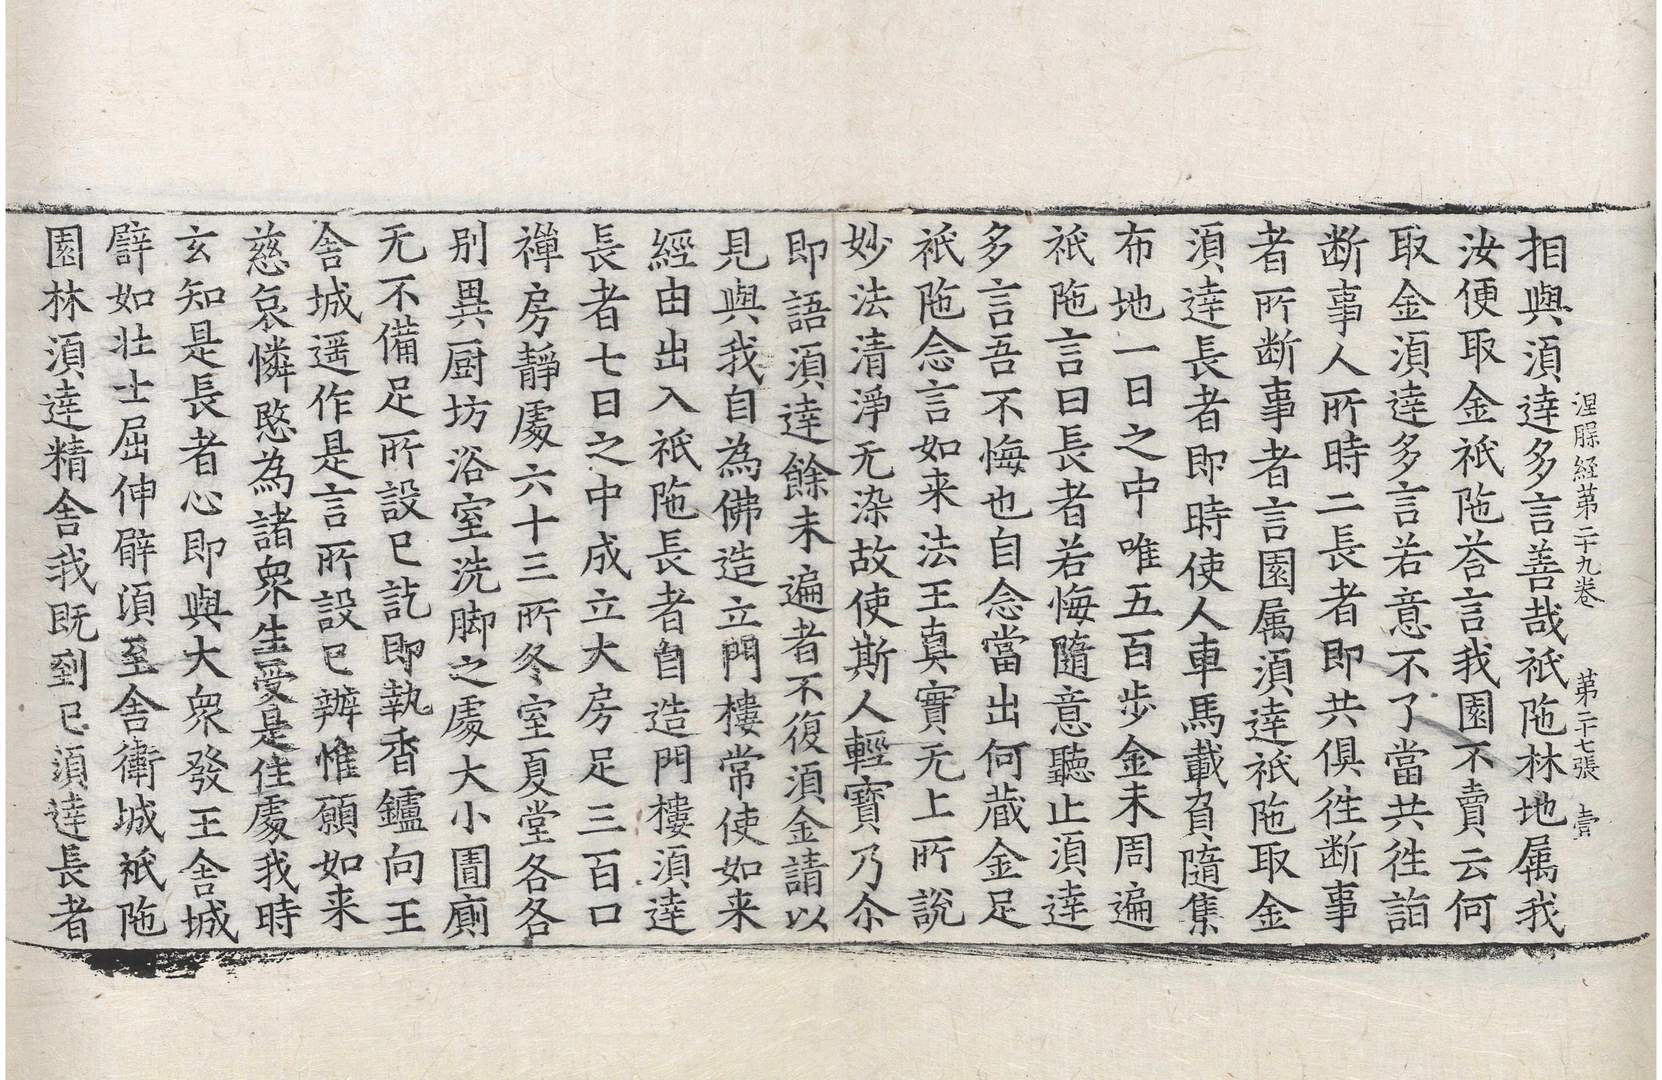 涅槃経第二十九卷 第二十七張 壹
相與須達多言善哉祇陁林地属我
汝便取金祇陁荅言我園不賣云何
取金須達多言若意不了當共徃詣
断事人所時二長者即共俱徃断事
者所断事者言園属須達祇陁取金
須達長者即時使人車馬載負隨集
布地一日之中唯五百步金未周遍
祇陁言曰長者若悔隨意聽止須達
多言吾不悔也自念當出何藏金足
祇陁念言如来法王真實无上所說
妙法清淨无染故使斯人輕寶乃尒
即語須達餘未遍者不復須金請以
見與我自為佛造立門樓常使如来
經由出入祇陁長者自造門樓須達
長者七日之中成立大房足三百口
禪房靜處六十三所冬室夏堂各各
别異厨坊浴室洗脚之處大小圊廁
无不備足所設已訖即執香鑪向王
舍城遥作是言所設已辦惟願如来
慈哀憐愍為諸衆生受是住處我時
玄知是長者心即與大衆發王舍城
譬如壮士屈伸臂須至舍衛城祇陁
園林須達精舍我既到已須達長者